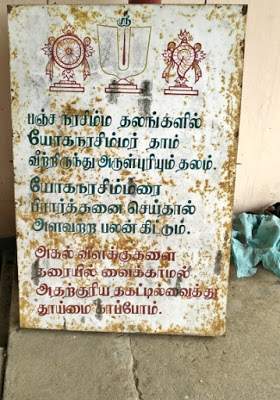 ஸ்ரீ
பஞ்ச நரசிம்ம தலங்களில்
யோகநரசிம்மர் தாம்
வீற்றிருந்து அருள்புரியும் தலம்.
யோகநரசிம்மரை
பிரார்த்தனை செய்தால்
அளவற்ற பலன் கிட்டும்.
அகல் விளக்குகளை
தரையில் வைக்காமல்
அதற்குரிய தகட்டில்வைத்து
தூய்மை காப்போம்.